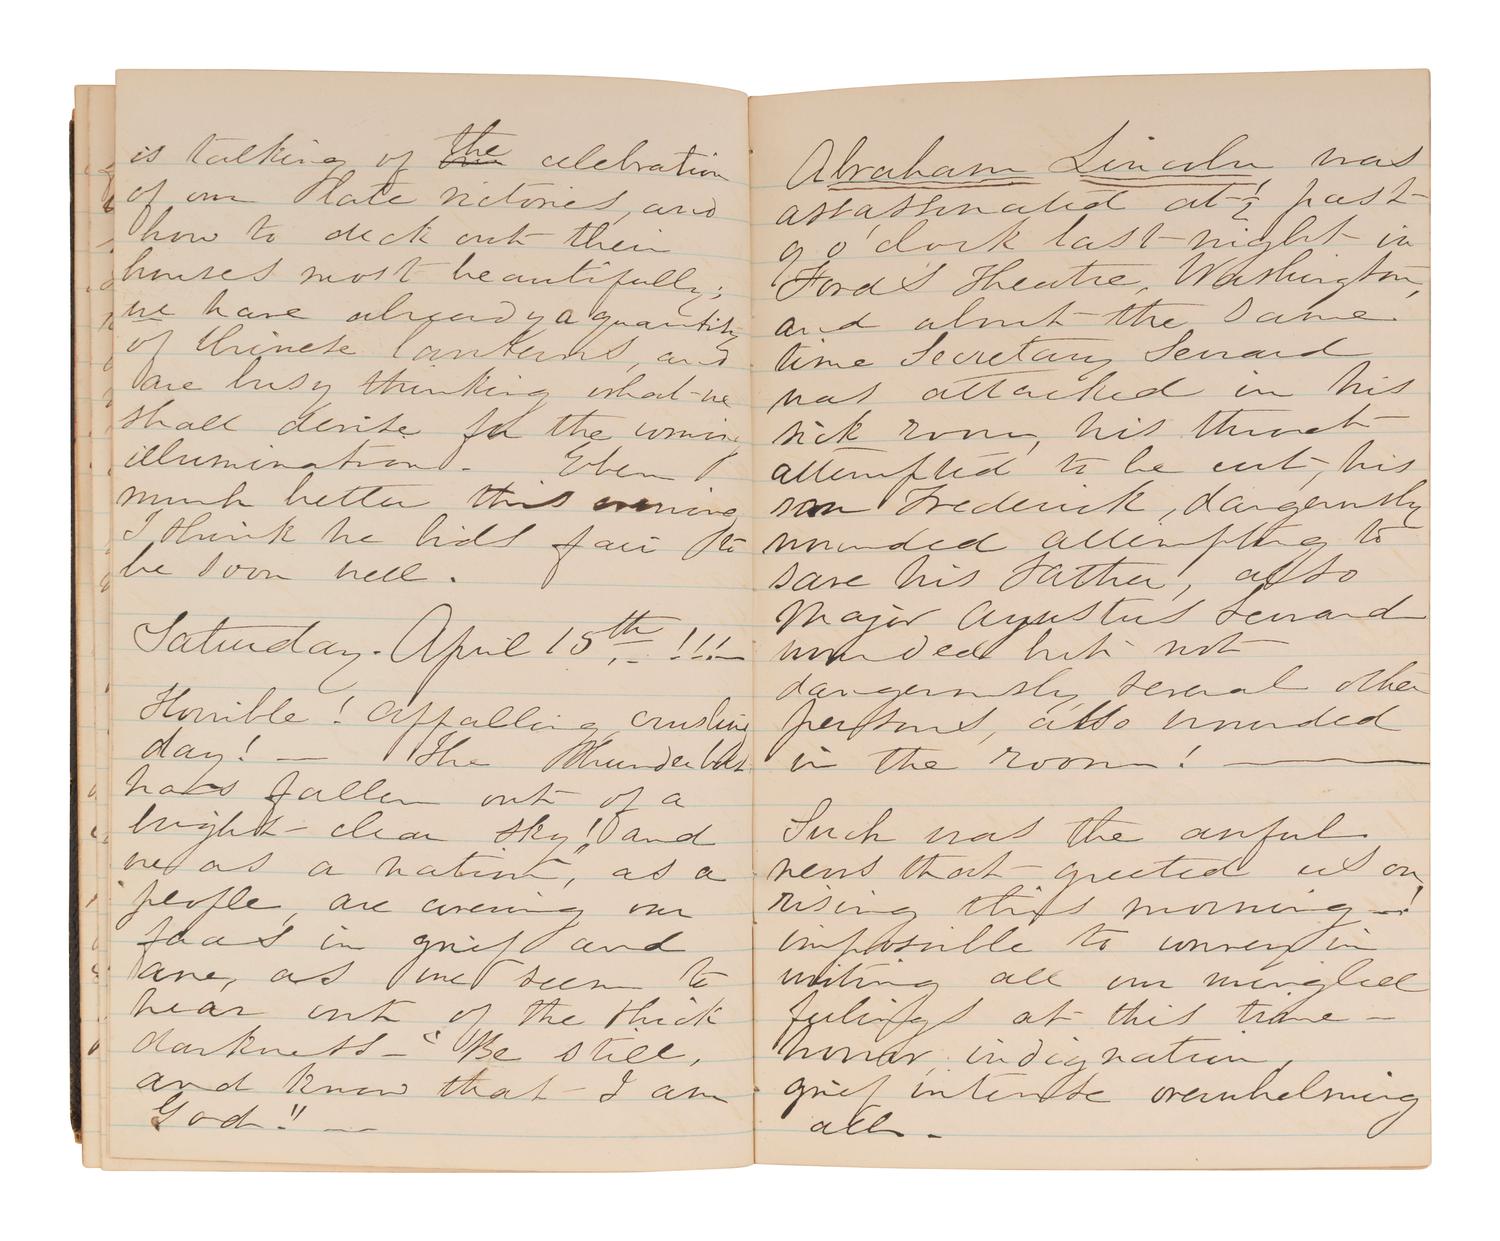 is talking of the celebration
of our late victories, and
how to deck out their
houses most beautifully;
we have already a quantity
of Chinese lanterns, and
are busy thinking what we
shall devise for the coming
illumination. Eben
much better this evening
I think he bids fair to
be soon well.
Saturday. April 15th. !!!
Horrible! Appalling, crushing
day! — The Thunderbolt
has fallen out of a
bright - clear sky! and
we as a nation, as a
people, are covering our
faces in grief and
awe, as we seem to
hear out of the thick
darkness - "Be still,
and know that I am
God!! —
Abraham Lincoln was
assassinated at ½ past
9 o'clock last night in
Ford's Theatre, Washington,
and about the same
time Secretary Seward
was attacked in his
sick room, his throat
attempted to be cut, his
son Frederick, dangerously
wounded attempting to
save his Father, also
Major Agustus Seward
wounded but not
dangerously, several other
persons, also wounded
in the room! —
Such was the awful
news that greeted us on
rising this morning -!
impossible to convey in
writing all our mingled
feelings at this time -
horror, indignation,
grief intense overwhelming
all. -